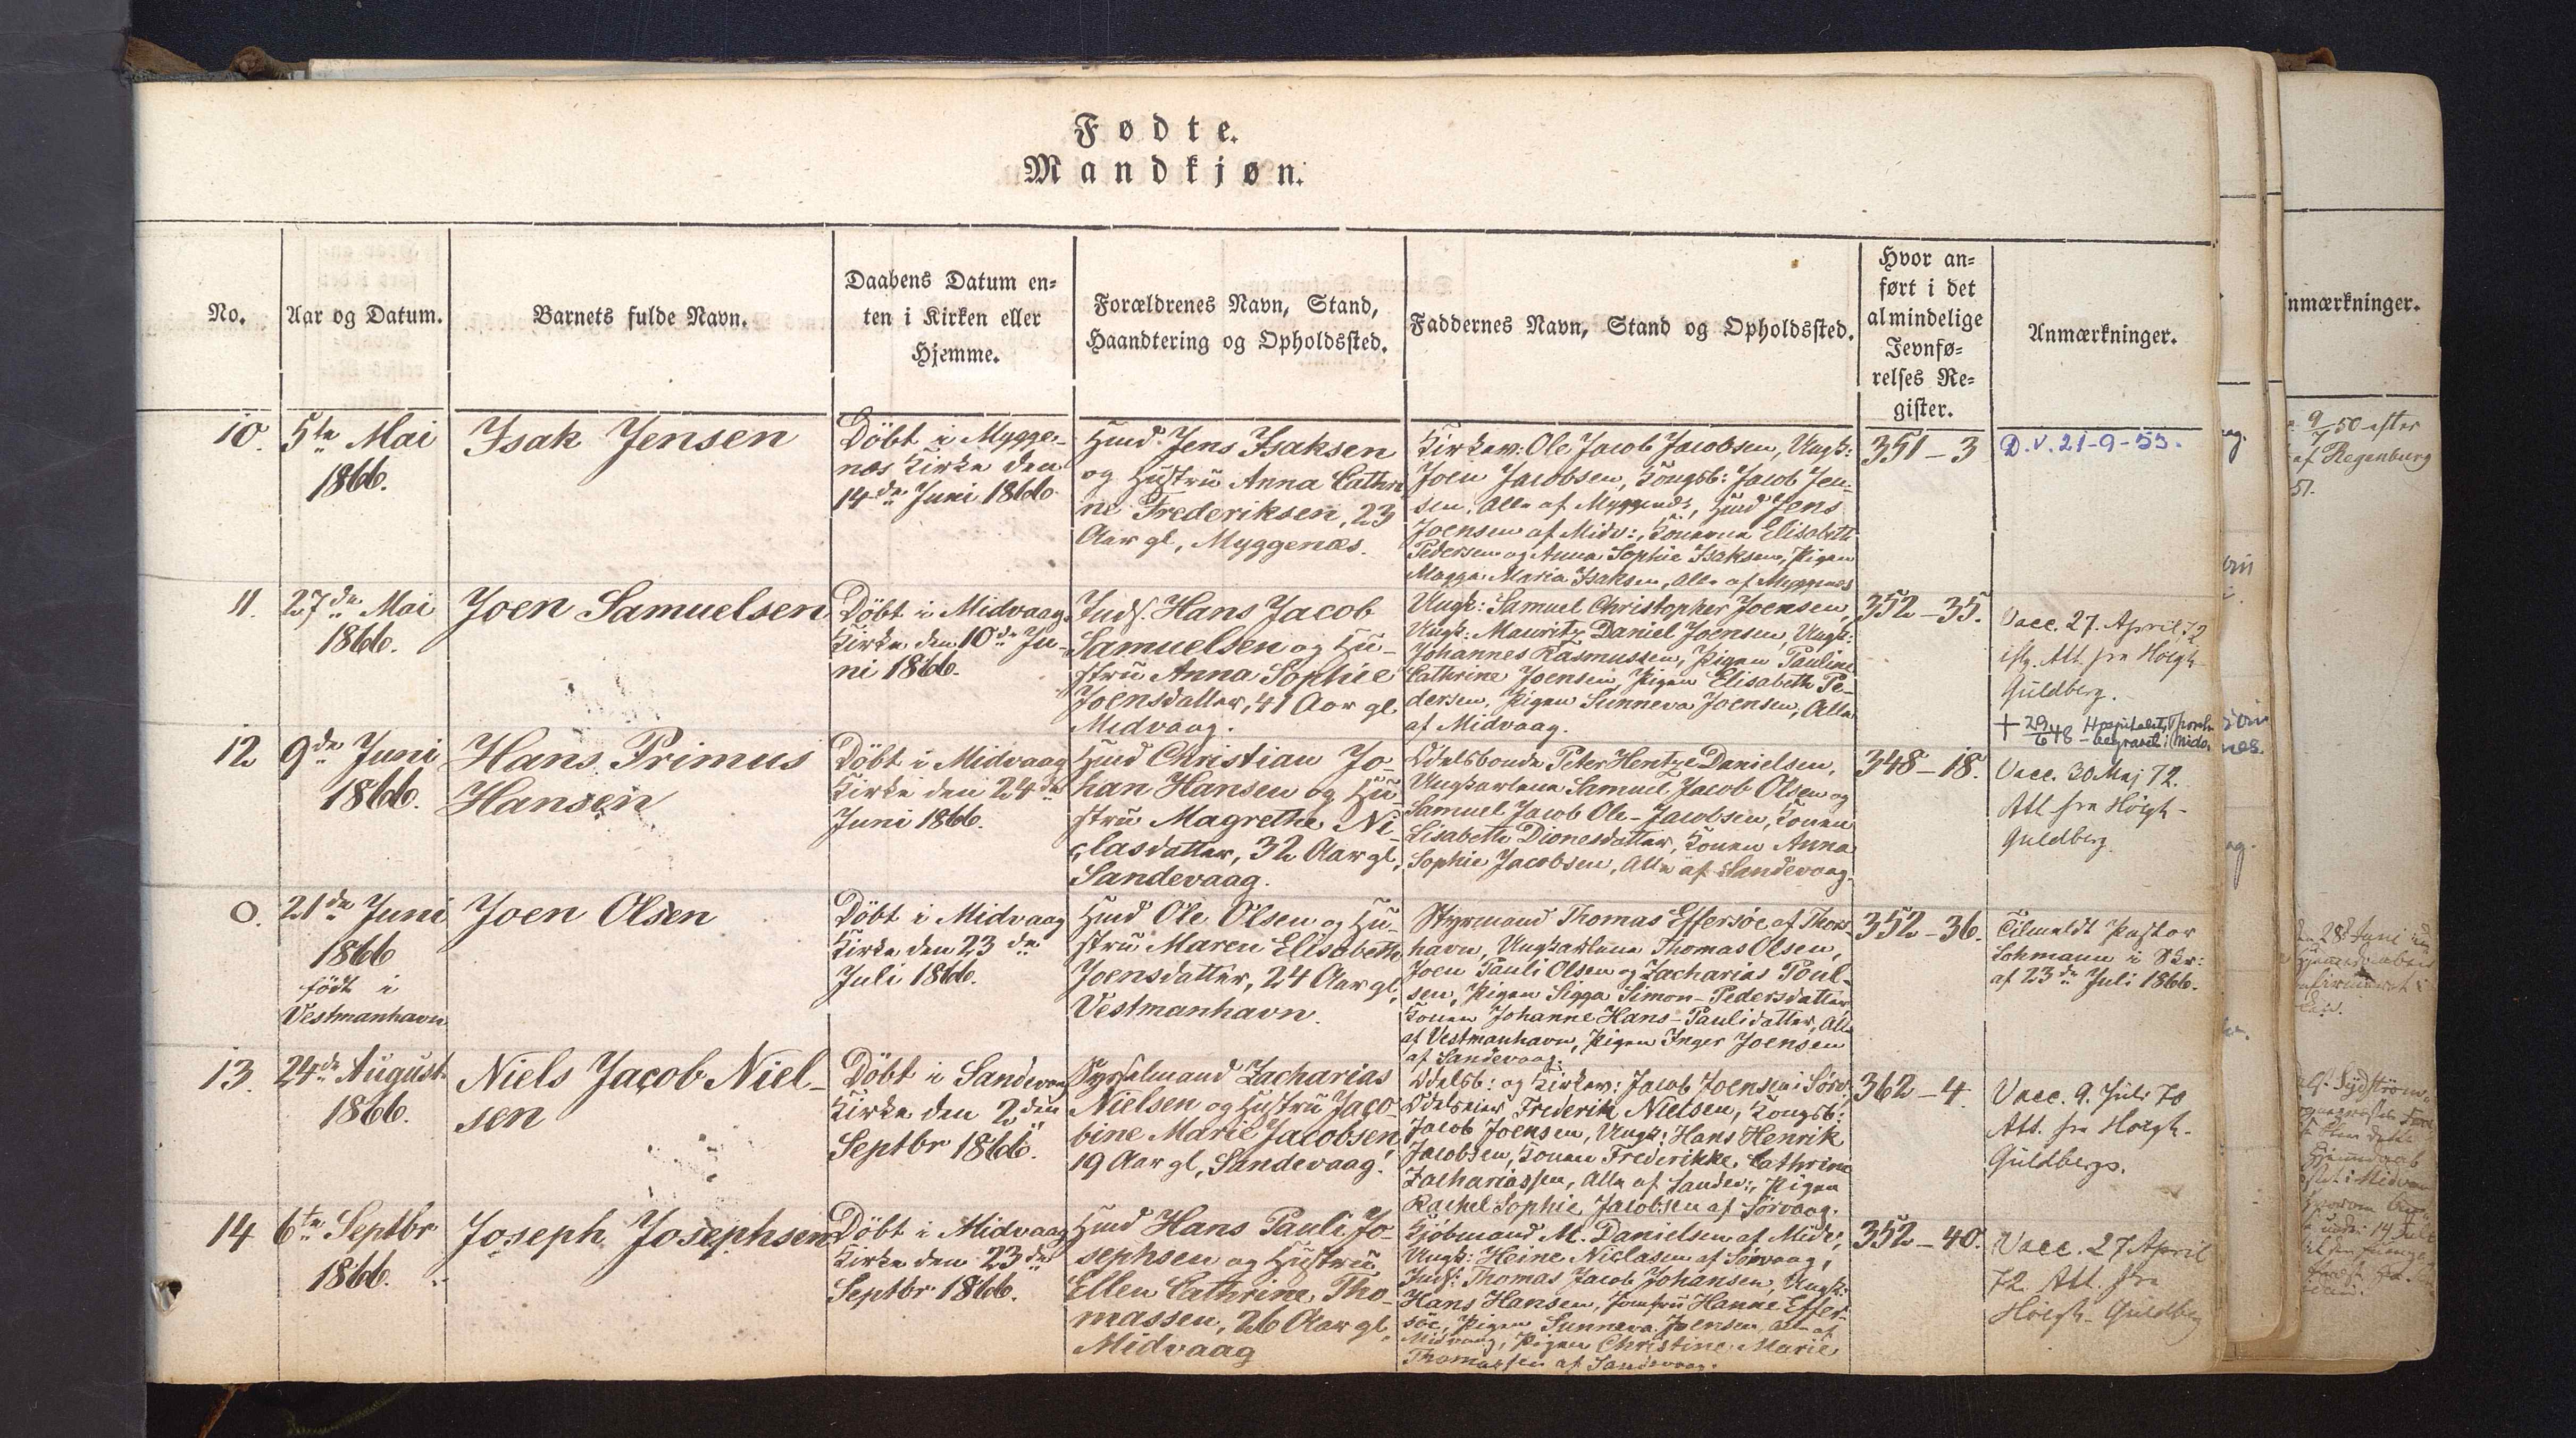 Fødte.
Mandkjøn.
No.
Aar og Datum.
Barnets fulde Navn.
Daabens Datum en-
ten i Kirken eller
Hjemme.
Forældrenes Navn, Stand,
Haandtering og Opholdssted.
Faddernes Navn, Stand og Opholdssted.
Hvor an-
ført i det
almindelige
Jevnfø-
relses Re-
gister.
Anmærkninger.
10.
5te Mai
1866.
Isak Jensen
Döbt i Mygge-
næs Kirke den
14de Juni 1866.
Hmd Jens Isaksen
og Hustru Anna Cathri
ne Frederiksen, 23
Aar gl, Myggenæs.
Kirkev: Ole Jacob Jacobsen, Ungk:
Joen Jacobsen, Kongsb: Jacob Jen-
sen, Alle af Myggenæs, Hmd Jens
Joensen af Midv:, Konerne Elisabeth
Pedersen og Anna Sophie Isaksen, Pigen
Magga Maria Isaksen, Alle af Myggenæs
351-3
D.V. 21-9-53.
11.
27de Mai
1866.
Joen Samuelsen
Döbt i Midvaag
Kirke den 10de Ju-
ni 1866.
Inds. Hans Jacob
Samuelsen og Hu-
stru Anna Sophie
Joensdatter, 41 Aar gl.
Midvaag.
Ungk: Samuel Christopher Joensen,
Ungk: Mauritz Daniel Joensen, Ungk:
Johannes Rasmussen, Pigen Pauline
Cathrine Joensen, Pigen Elisabeth Pe-
dersen, Pigen Sunneva Joensen, Alle
af Midvaag.
352-35.
Vacc. 27. April 72
iflg. Att. fra Høegh-
Guldberg.
+ 29/6 48 Hospitalet, Thorsh
begravet i Midv.
12
9de Juni
1866.
Hans Primus
Hansen
Döbt i Midvaag
Kirke den 24de
Juni 1866.
Hmd Christian Jo-
han Hansen og Hu-
stru Magrethe Ni-
clasdatter, 32 Aar gl,
Sandevaag.
Odelsbonde Peter Hentze Danielsen,
Ungkarlene Samuel Jacob Olsen og
Samuel Jacob Ole-Jacobsen, Konen
Lisabeth Dionesdatter, Konen Anna
Sophie Jacobsen, Alle af Sandevaag.
348-18.
Vacc. 30 Maj 72.
Att fra Høegh-
Guldberg.
O.
21de Juni
1866
födt i
Vestmanhavn
Joen Olsen
Döbt i Midvaag
Kirke den 23de
Juli 1866.
Hmd Ole Olsen og Hu-
stru Maren Elisabeth
Joensdatter, 24 Aar gl,
Vestmanhavn.
Styrmand Thomas Effersöe af Thors-
havn, Ungkarlene Thomas Olsen,
Joen Pauli Olsen og Zacharias Poul-
sen, Pigen Sigga Simon-Pedersdatter
Konen Johanne Hans-Paulidatter, Alle
af Vestmanhavn, Pigen Inger Joensen
af Sandevaag.
352-36.
Tilmeldt Pastor
Lohmann i Skr:
af 23de Juli 1866.
13.
24de August
1866.
Niels Jacob Niel-
sen
Döbt i Sandevaag
Kirke den 2den
Septbr 1866.
Sysselmand Zacharias
Nielsen og Hustru Jaco-
bine Marie Jacobsen,
19 Aar gl, Sandevaag.
Odelsb: og Kirkev: Jacob Joensen i Sörv:
Odelseier Frederik Nielsen, Kongsb:
Jacob Joensen, Ungk: Hans Henrik
Jacobsen, Konen Frederikke Cathrine
Zachariassen, Alle af Sandev:, Pigen
Rachel Sophie Jacobsen af Sörvaag.
362-4.
Vacc. 9. Juli 70
Att. fra Høegh-
Guldberg.
14
6te Septbr
1866.
Joseph Josephsen
Döbt i Midvaag
Kirke den 23de
Septbr 1866.
Hmd Hans Pauli Jo-
sephsen og Hustru
Ellen Cathrine Tho-
massen, 26 Aar gl,
Midvaag
Kjöbmand M. Danielsen af Midv,
Ungk: Heine Niclasen af Sörvaag,
Inds: Thomas Jacob Johansen, Ungk:
Hans Hansen, Jomfru Hanne Effer-
söe, Pigen Sunneva Joensen, Alle af
Midvaag, Pigen Christine Marie
Thomassen af Sandevaag.
352-40.
Vacc. 27 April
72. Att. fra
Høegh-Guldberg
nmærkninger.
9/7 50 efter
af Regenburg
51.